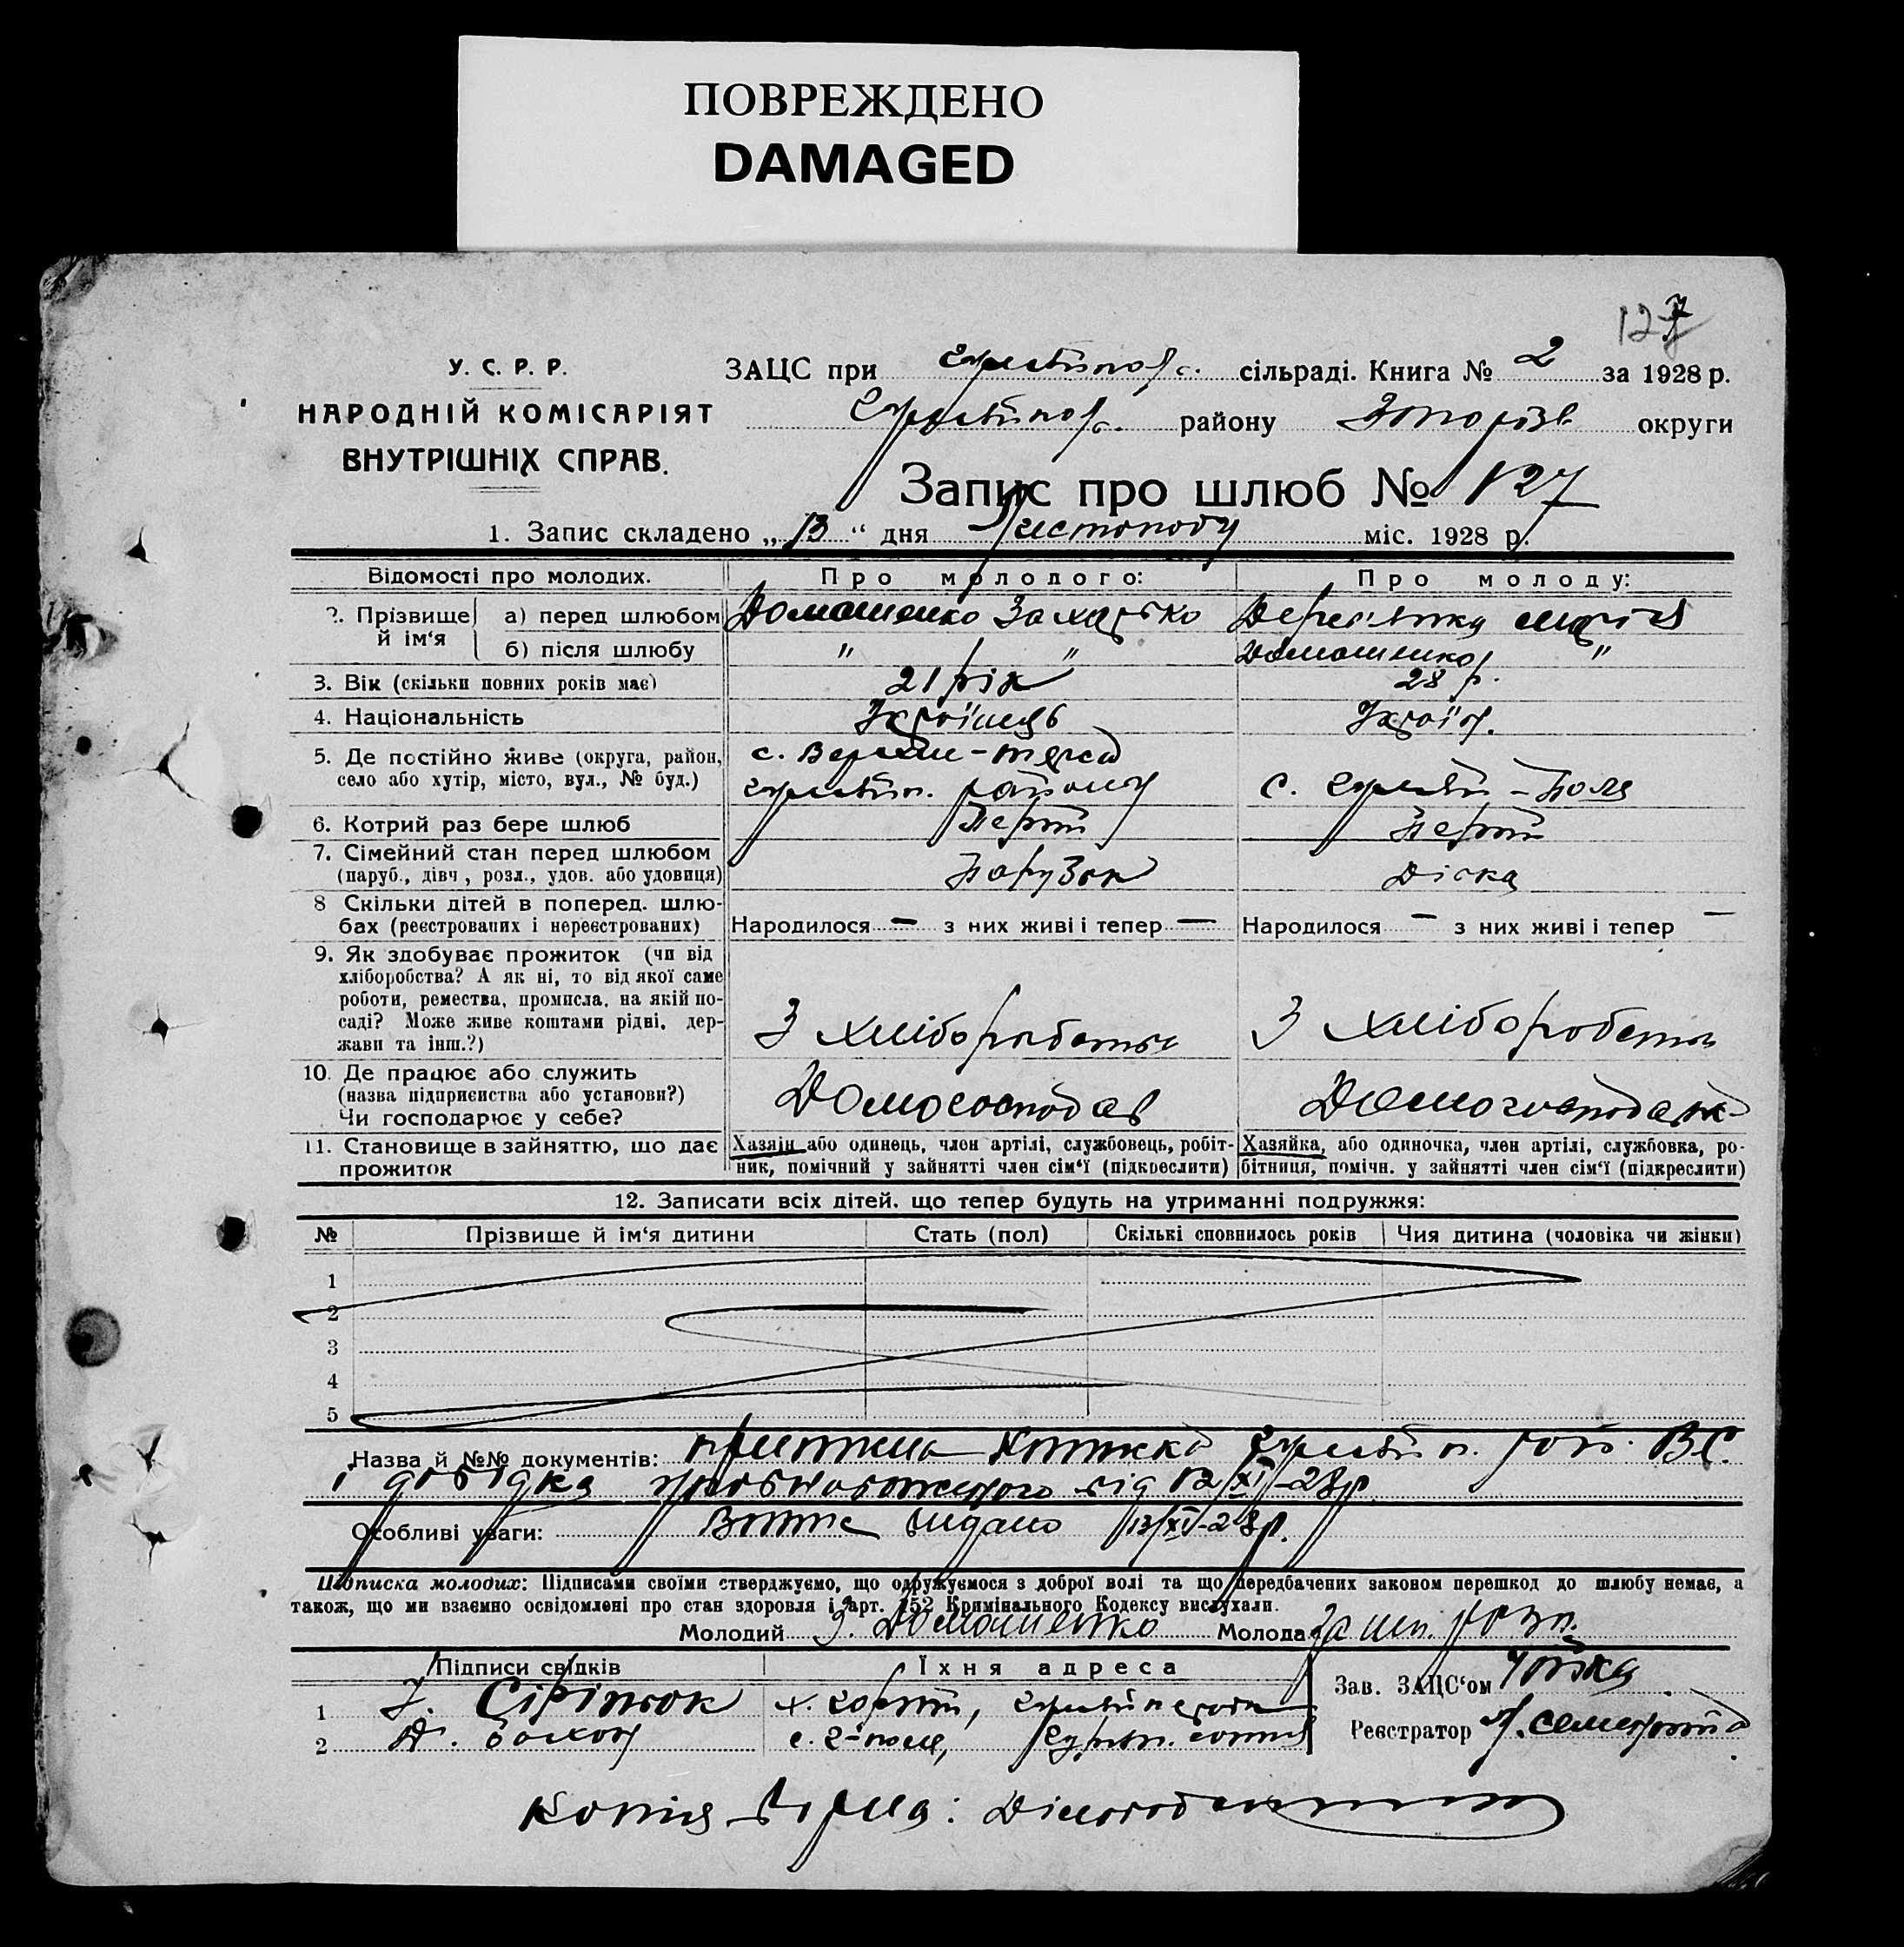 ПОВРЕЖДЕНО
DAMAGED
127
У. С. Р. Р.
НАРОДНІЙ КОМІСАРІЯТ
ВНУТРІШНІХ СПРАВ.
ЗАЦС при сільраді. Книга № 2 за 1928 р.
району Запорізь округи
Запис про шлюб № 127
1. Запис складено „ 13 “ дня Листопаду міс. 1928 р.
Відомості про молодих. Про молодого: Про молоду:
2. Прізвище й ім‘я а) перед шлюбом Домашенко Захарько Дерев'янка Марія
б) після шлюбу " " Домашенко "
3. Вік (скільки повних років має) 21 рік 28 р.
4. Національність Українець Україн.
5. Де постійно живе (округа, район, с. Верхня-терса
село або хутір, місто, вул., № буд.) району с. Поле
6. Котрий раз бере шлюб Перший Перший
7. Сімейний стан перед шлюбом
(паруб., дівч., розл., удов. або удовиця) Парубок Дівка
8 Скільки дітей в поперед. шлю-
бах (реєстрованих і нереєстрованих) Народилося — з них живі і тепер — Народилося — з них живі і тепер —
9. Як здобуває прожиток (чи від
хліборобства? А як ні, то від якої саме
роботи, ремества, промисла, на якій по-
саді? Може живе коштами рідні, дер-
жави та інш.?) З хліборобства З хліборобства
10. Де працює або служить
(назва підприємства або установи?)
Чи господарює у себе? Домогосподар Домогосподарка
11. Становище в зайняттю, що дає
прожиток
Хазяїн або одинець, член артілі, службовець, робіт-
ник, помічний у зайнятті член сім‘ї (підкреслити)
Хазяйка, або одиночка, член артілі, службовка, ро-
бітниця, помічн. у зайнятті член сім‘ї (підкреслити)
12. Записати всіх дітей, що тепер будуть на утриманні подружжя:
№ Прізвище й ім‘я дитини Стать (пол) Скількі сповнилось років Чия дитина (чоловіка чи жінки)
1
2
3
4
5
Назва й №№ документів: приписна Книжка
і довідка від 12/XI-28р.
Особливі уваги: Витяг видано 13/XI-28р.
Підписка молодих: Підписами своїми стверджуємо, що одружуємося з доброї волі та що передбачених законом перешкод до шлюбу немає, а
також, що ми взаємно освідомлені про стан здоровля і арт. 152 Кримінального Кодексу вислухали.
Молодий З. Домашенко Молода
Підписи свідків Їхня адреса
Зав. ЗАЦС‘ом
1
Реєстратор
2
Копія вірна: